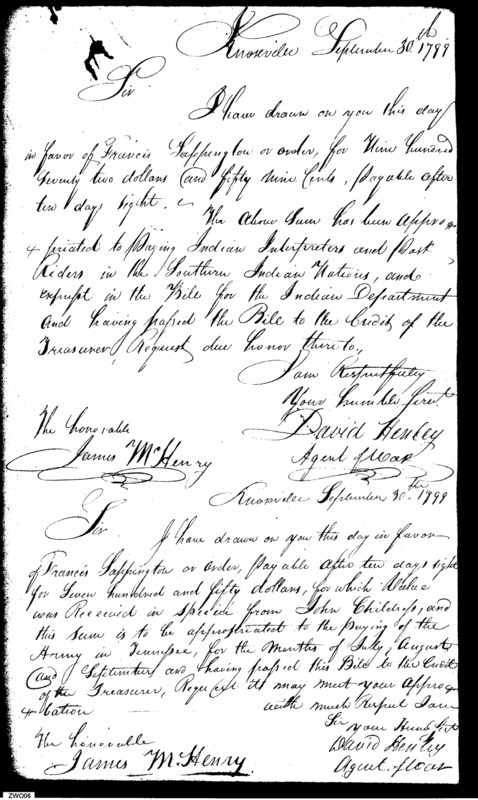 Knoxville September 30.th 1799
Sir
I have drawn on you this day
in favor of Francis Sappington or order, for Nine hundred
Seventy two dollars and fifty Nine Cents, payable after
ten days sight.
The above Sum has been appro
priated to Paying Indian Interpreters and Post
Riders in the Southern Indian Nations, and
exprest in the Bill for the Indian Department
and having passed the Bill to the Credit of the
Treasurer, Request due honor thereto,
I am Respectfully
Your humble Servt
The honorable
James McHenry
David Henley
Agent of War
Knoxville September 30.th 1799
Sir
I have drawn on you this day in favor
of Francis Sappington or order, payable after ten days sight
for Seven hundred and fifty dollars, for which Value
was Received in Specie from John Childress, and
this sum is to be appropriated to the paying of the
Army in Tennessee, for the Months of July, August
and September and having passed this Bill to the Credit
of the Treasurer, Request it may meet your Appro
bation
with much Respect I am
Sir
your Humb Svt
The honorable
James McHenry
David Henley
Agent of War
ZWO06